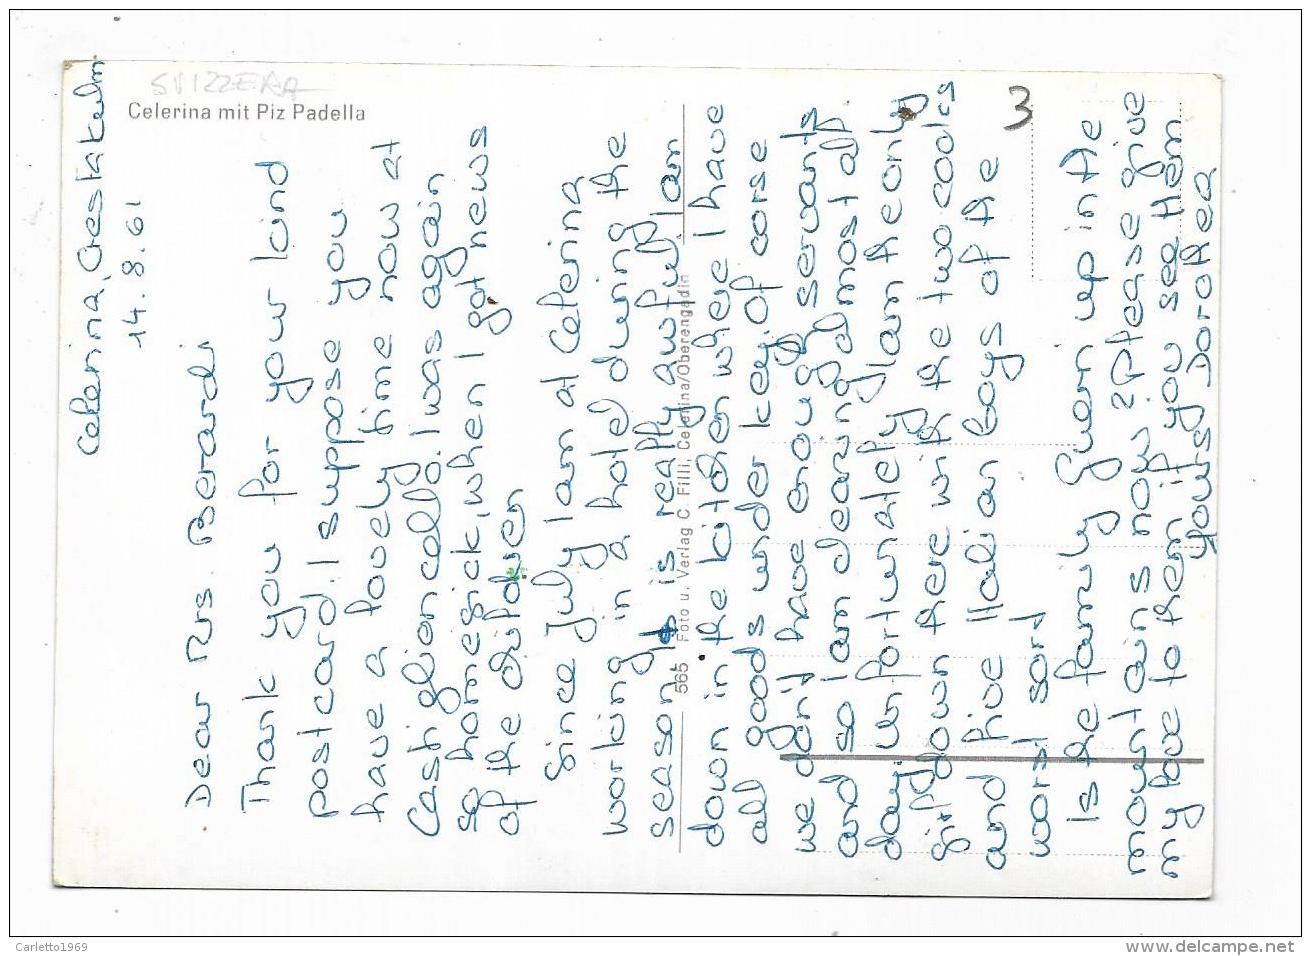 SVIZZERA
Celerina mit Piz Padella
3
Celerina, Crestakulm
14.8.61
Dear Mrs. Berardi
Thank you for your kind
postcard. I suppose you
have a lovely time now at
Castiglioncello. I was again
so homesick, when I got news
of the children
Since July I am at Celerina
working in a hotel during the
season. It is really awful, I am
down in the kitchen where I have
all goods under key. Of corse
we don't have enough servants
and so I am clearing almost all
day. Unfortunately I am the only
girl down there with the two cooks
and five Italian boys of the
worst sort!
Is the family Guern up in the
mountains now? Please give
my love to them if you see them
Yours Dorothea
565 Foto u. Verlag C. Filli, Celerina/Oberengadin
Carletto1969
www.delcampe.net